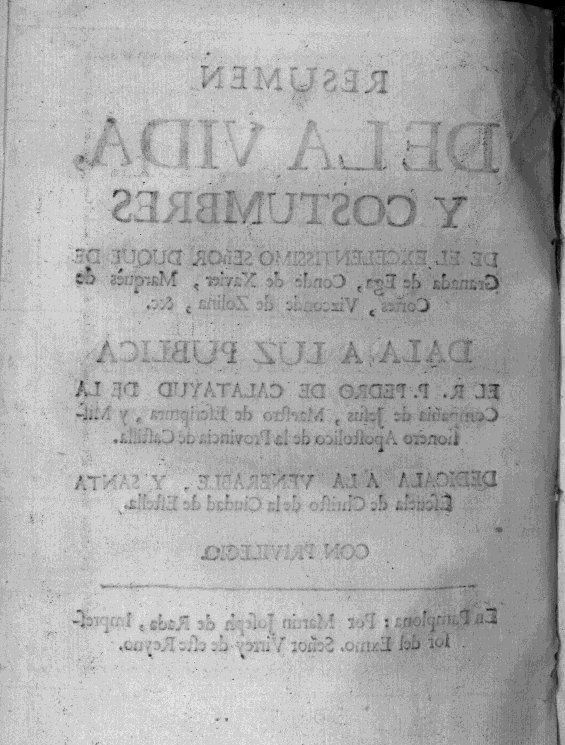 RESUMEN
DE LA VIDA,
Y COSTUMBRES
DE EL EXCELENTISSIMO SEñOR DUQUE DE
Granada de Ega, Conde de Xavier, Marquès de
Cortes, Vizconde de Zolina, &c.
DALA A LUZ PUBLICA
EL R. P. PEDRO DE CALATAYUD DE LA
Compañia de Jesus, Maestro de Escriptura, y Mis-
sionero Apostolico de la Provincia de Castilla.
DEDICALA A LA VENERABLE, Y SANTA
Escuela de Christo de la Ciudad de Estella.
CON PRIVILEGIO.
En Pamplona: Por Martin Joseph de Rada, Impres-
sor del Exmo. Señor Virrey de este Reyno.